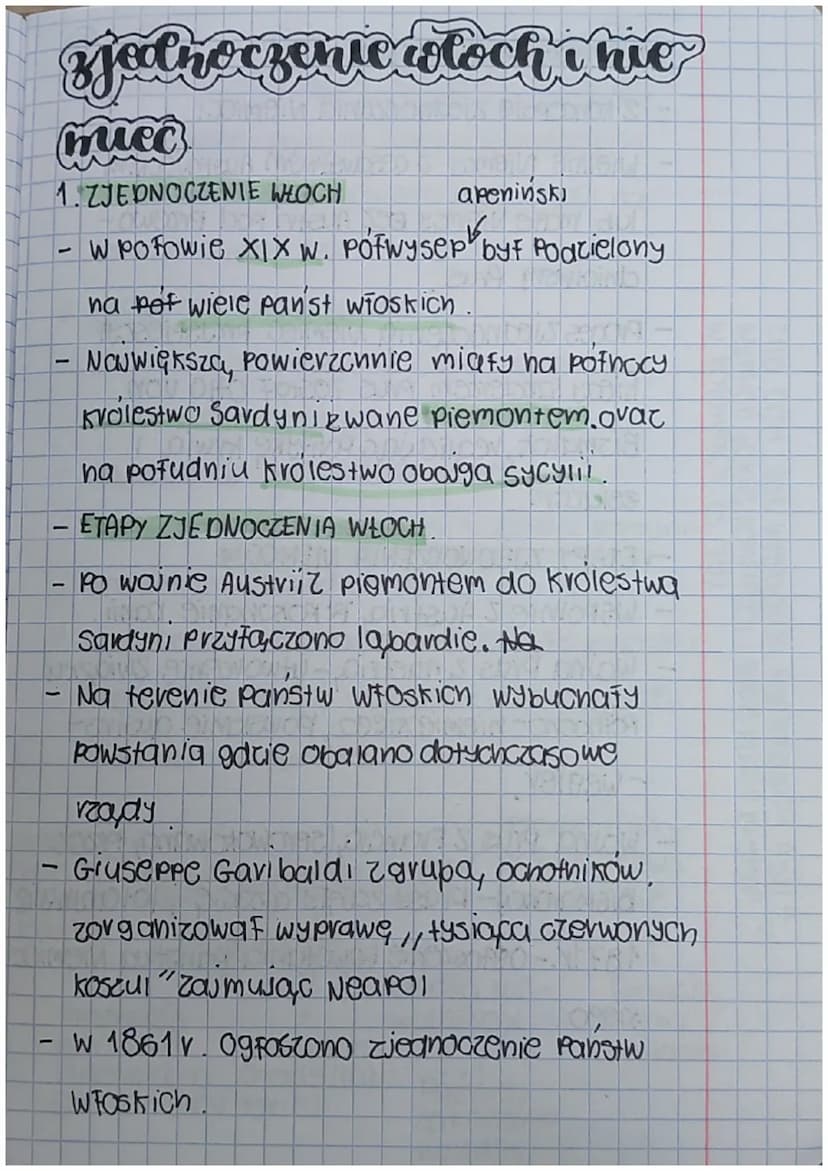 zjednoczenie włoch i nie
miec
1. ZJEDNOCZENIE WŁOCH
apeniński
- W połowie XIX w. półwysep był podzielony
na pół wiele państ włoskich.
- Największą powierzchnie miały na północy
królestwo Sardyni zwane piemontem. oraz
na południu królestwo obojga sycylii.
- ETAPY ZJEDNOCZENIA WŁOCH.
- Po wojnie Austrii z piemontem do królestwa
sardyni przyłączonoląbardie. Na
- Na terenie państw włoskich wybuchały
powstania gdzie obalano dotychczasowe
rządy.
- Giuseppe Garibaldi z grupą ochotników.
zorganizował wyprawę ,,tysiąca czerwonych
koszul" zajmując Neapol
- W 1861 r. Ogłoszono zjednoczenie państw
włoskich.